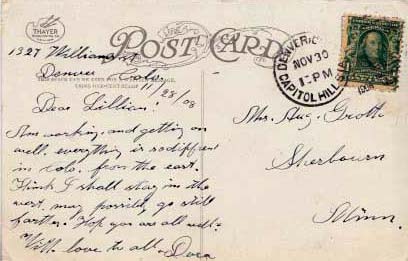 THAYER
POST CARD
1327 Williams St
Denver Colo.
11/28/08
Dear Lillian!
Am working and getting on
well. everything is so diffrent
in Colo. from the east.
Think I shall stay in the
west, may possibly go still
farther. Hope you are all well.
With love to all. Dora
DENVER
NOV 30
1-PM
CAPITOL HILL STA.
Mrs. Aug. Grotte
Sherbourn
Minn.